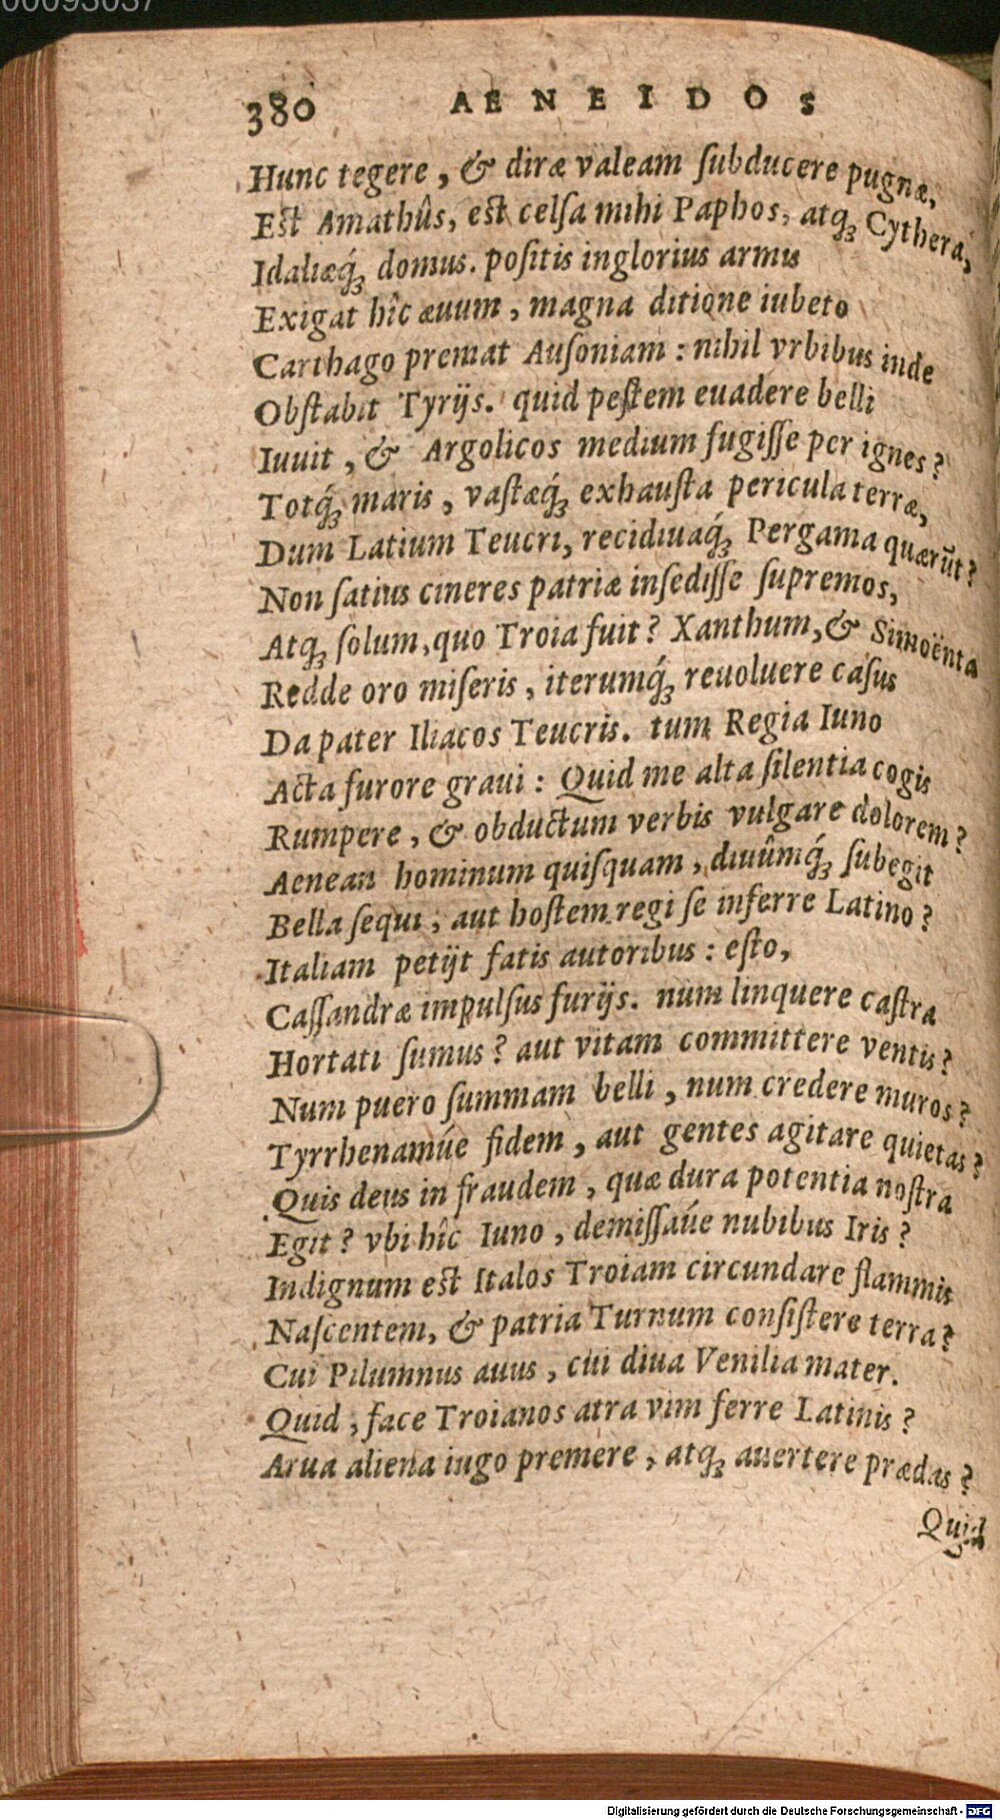 00093037
380 AENEIDOS
Hunc tegere, & diræ valeam ſubducere pugnæ,
Est Amathûs, est celſa mihi Paphos, atq; Cythera,
Idaliæq́; domus. poſitis inglorius armis
Exigat hîc æuum, magna ditione iubeto
Carthago premat Auſoniam: nihil vrbibus inde
Obſtabit Tyrijs. quid peſtem euadere belli
Iuuit, & Argolicos medium fugiſſe per ignes?
Totq́; maris, vaſtæq́; exhauſta pericula terræ,
Dum Latium Teucri, recidiuaq́; Pergama quærūt?
Non ſatius cineres patriæ inſediſſe ſupremos,
Atq; ſolum, quo Troia fuit? Xanthum, & Simoënta
Redde oro miſeris, iterumq́; reuoluere caſus
Da pater Iliacos Teucris. tum Regia Iuno
Acta furore graui: Quid me alta ſilentia cogis
Rumpere, & obductum verbis vulgare dolorem?
Aenean hominum quiſquam, diuûmq́; ſubegit
Bella ſequi, aut hoſtem regi ſe inferre Latino?
Italiam petijt fatis autoribus: eſto,
Caſſandræ impulſus furijs. num linquere caſtra
Hortati ſumus? aut vitam committere ventis?
Num puero ſummam belli, num credere muros?
Tyrrhenamúe fidem, aut gentes agitare quietas?
Quis deus in fraudem, quæ dura potentia noſtra
Egit? vbi hîc Iuno, demiſſaúe nubibus Iris?
Indignum est Italos Troiam circundare flammis
Naſcentem, & patria Turnum conſiſtere terra?
Cui Pilumnus auus, cui diua Venilia mater.
Quid, face Troianos atra vim ferre Latinis?
Arua aliena iugo premere, atq; auertere prædas?
Quid
Digitalisierung gefördert durch die Deutsche Forschungsgemeinschaft - DFG